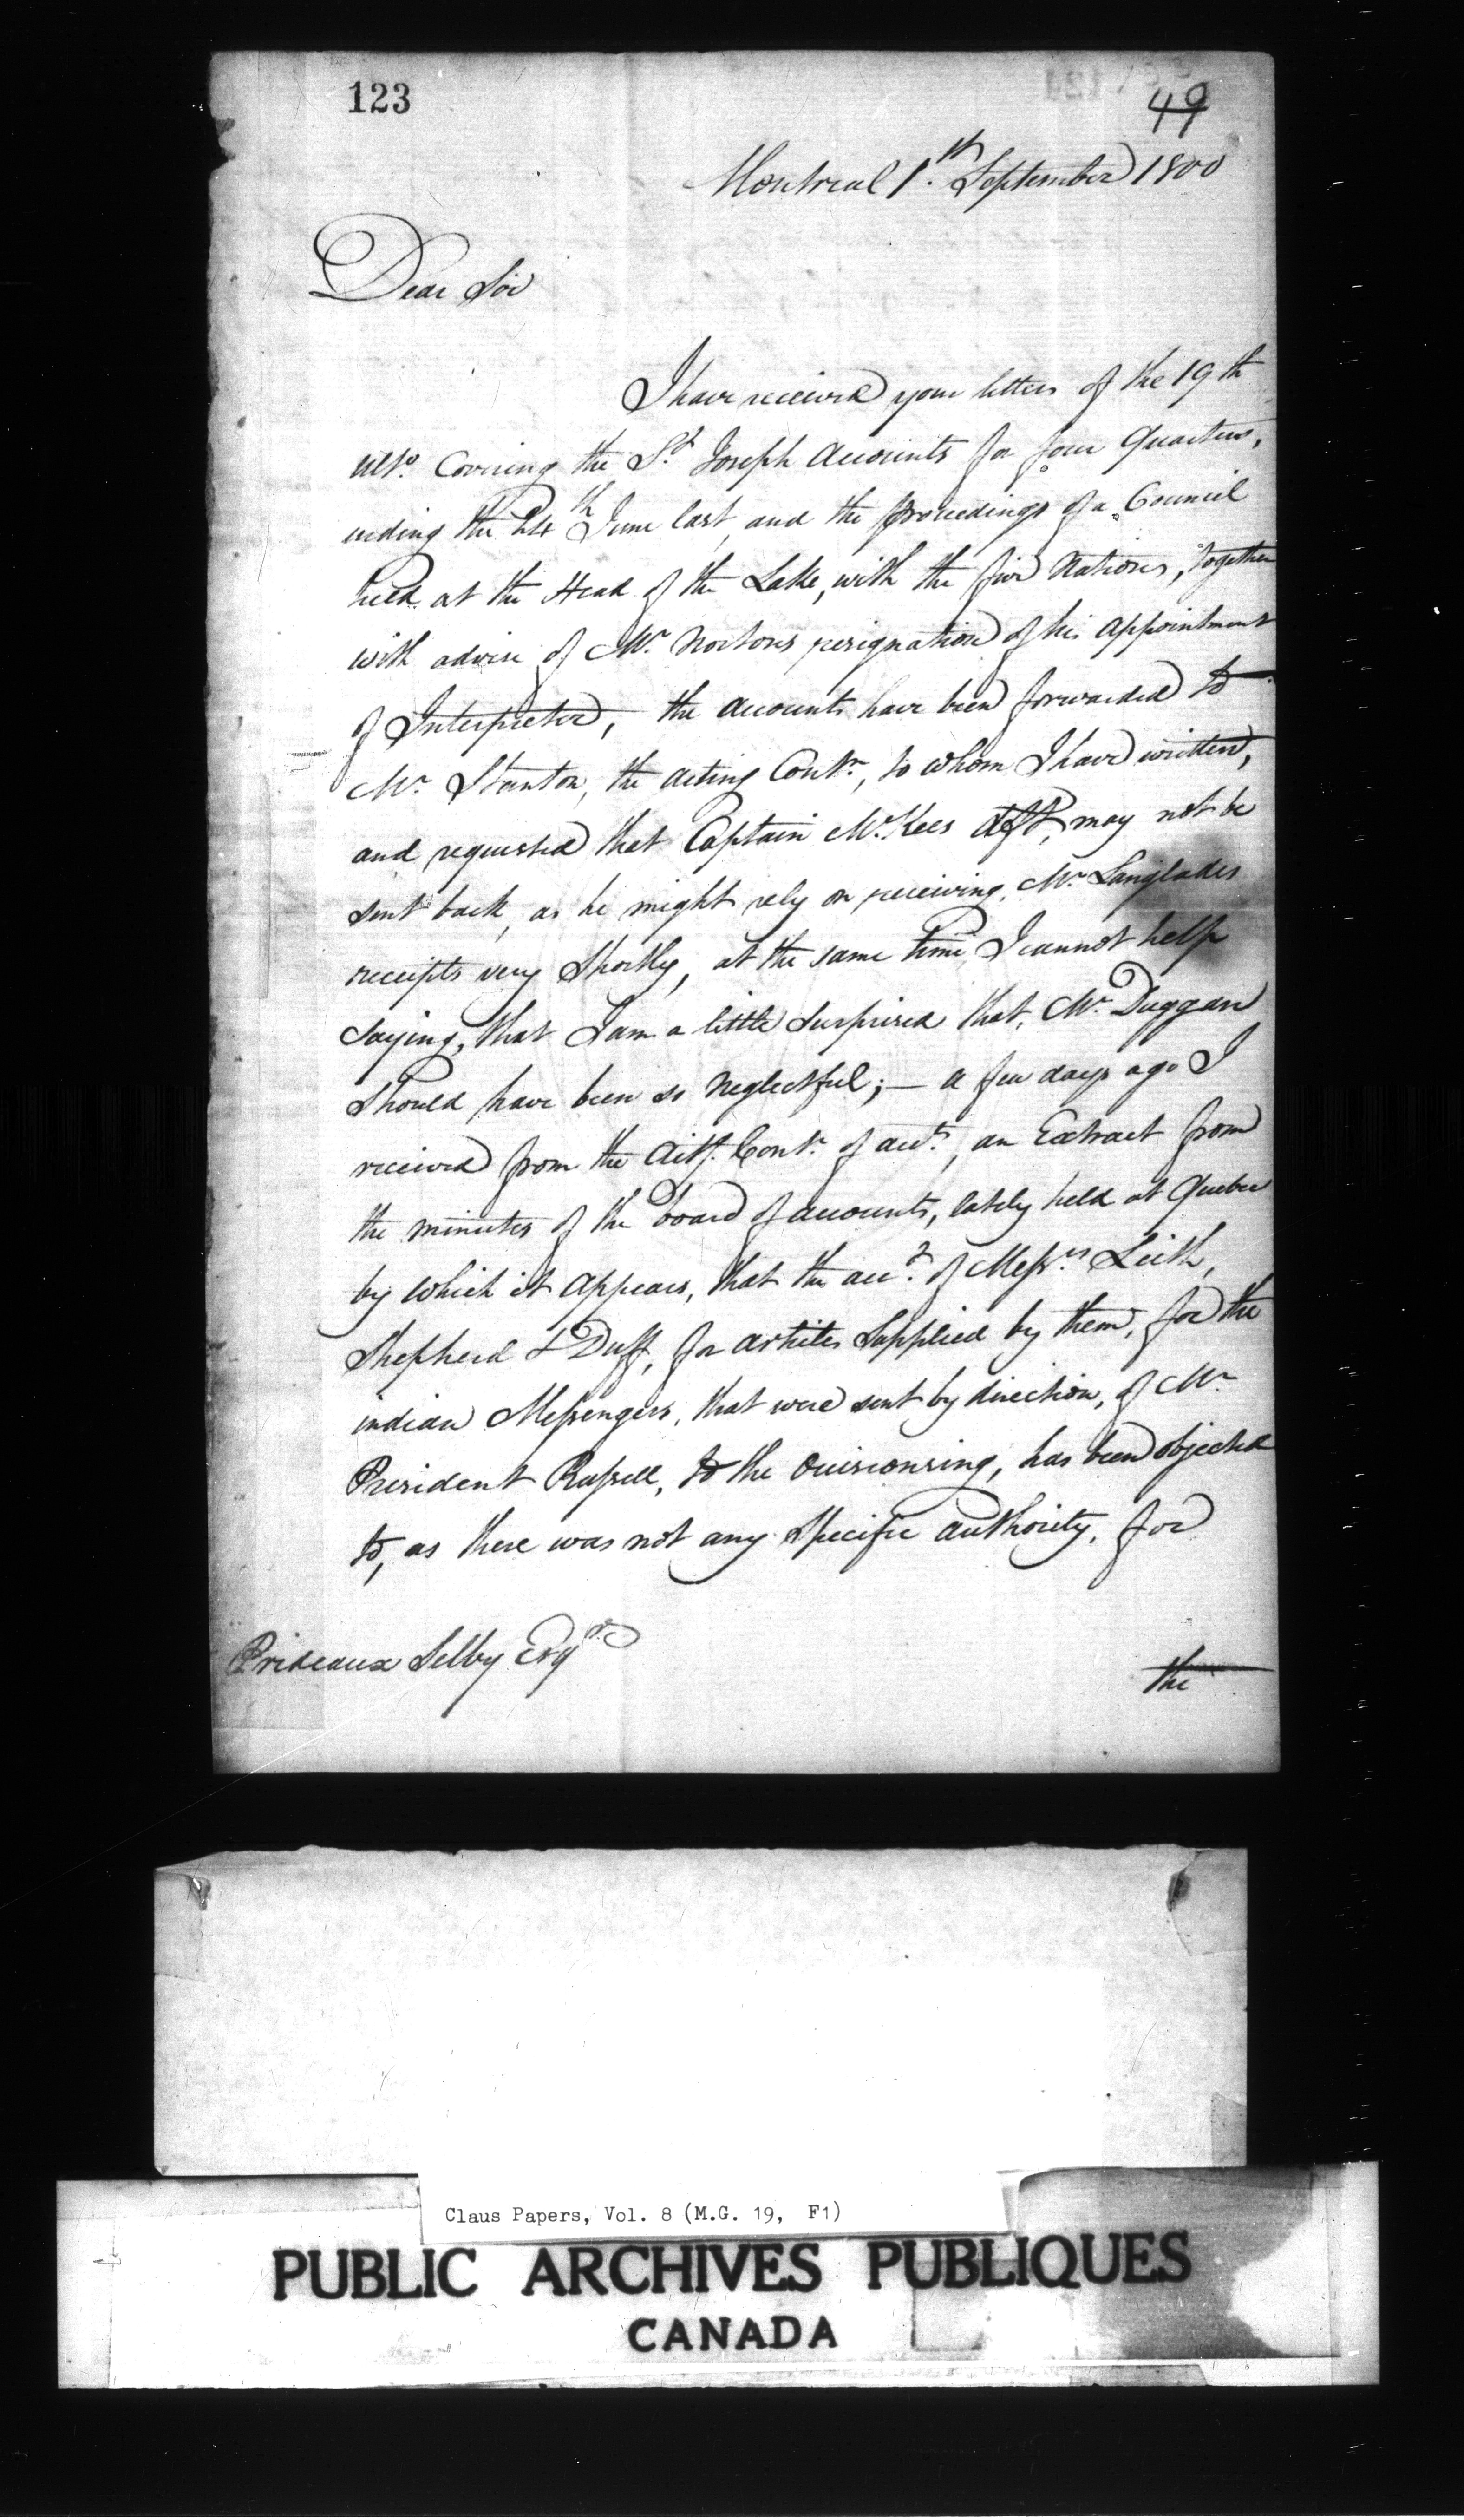 123
49
Montreal 1.th September 1800
Dear Sir
I have received your letters of the 19th
ulto. Covering the St. Joseph Accounts for four Quarters,
ending the 24th June last, and the proceedings of a Council
held at the Head of the Lake, with the five Nations, together
with advise of Mr. Nortons resignation of his appointment
of Interpreter, the Accounts have been forwarded to
Mr. Stanton, the acting Contr., to whom I have written,
and requested that Captain McKees may not be
sent back, as he might rely on receiving, Mr. Langlades
receipts very Shortly, at the same time I cannot help
saying, that I am a little surprised that, Mr. Duggan
Should have been so Neglectful; — a few days ago I
received from the Actg. Contr. of acts., an Extract from
the minutes of the board of accounts, lately held at Quebec
by which it appears, that the acct. of Messrs Leith,
Shepherd & Duff, for articles Supplied by them, for the
indian Messengers, that were sent by direction, of Mr
President Russell, to the Ouisconsing, has been objected
to, as there was not any Specific authority, for
Prideaux Selby Esqr.
the
Claus Papers, Vol. 8 (M.G. 19, F1)
PUBLIC ARCHIVES PUBLIQUES
CANADA